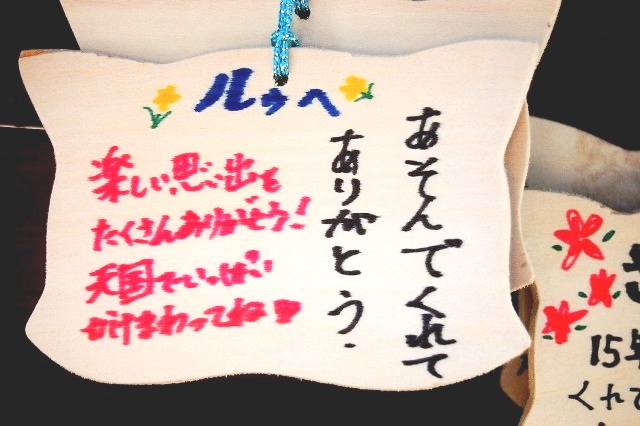 ルゥへ
あそんでくれて
ありがとう.
楽しい思い出を
たくさんありがとう!
天国でいっぱい
かけまわってね♥
15年
くれて